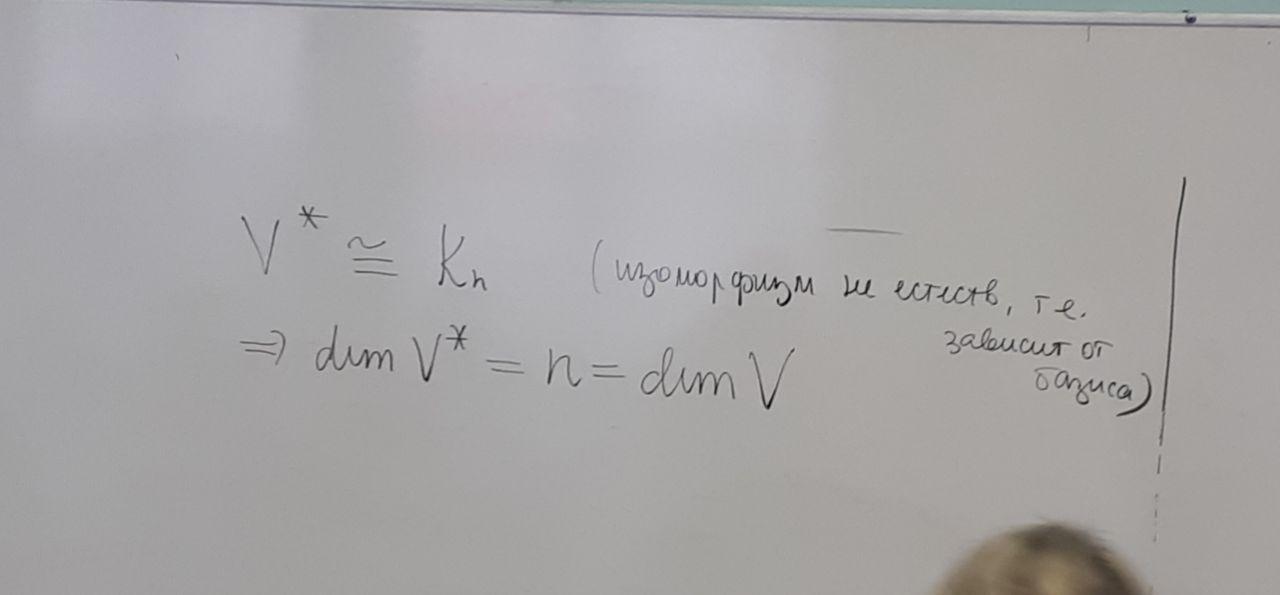 V* ≅ Kₙ (изоморфизм не естеств, т.е.
зависит от
базиса)
⇒ dim V* = n = dim V